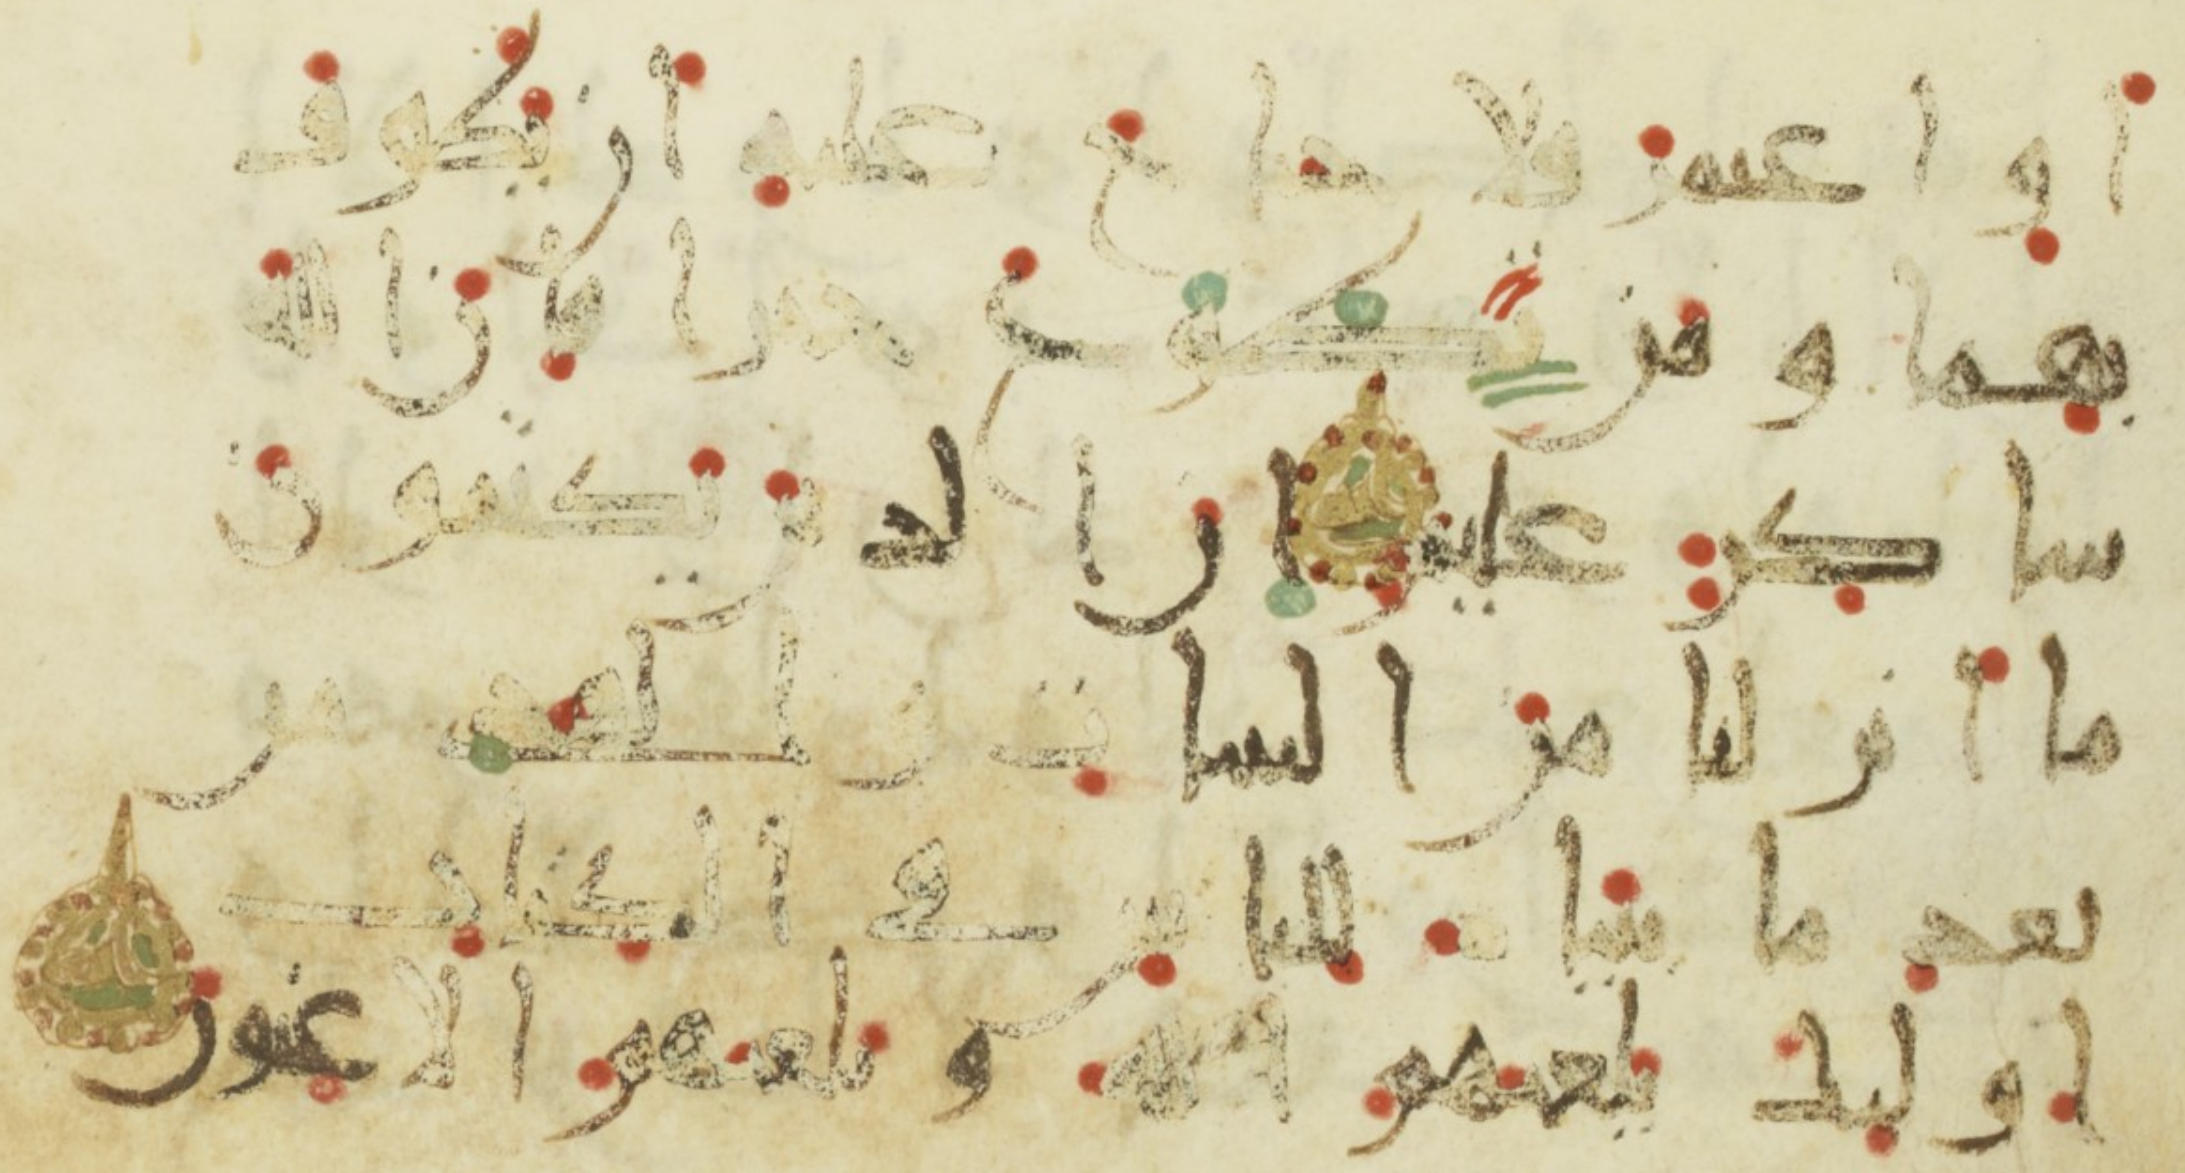 أو اعتمر فلا جناح عليه أن يطوف
بهما ومن تطوع خيرا فإن الله
شاكر عليم إن الذين يكتمون
ما أنزلنا من البينات والهدى من
بعد ما بيناه للناس في الكتاب
أولئك يلعنهم الله ويلعنهم اللاعنون